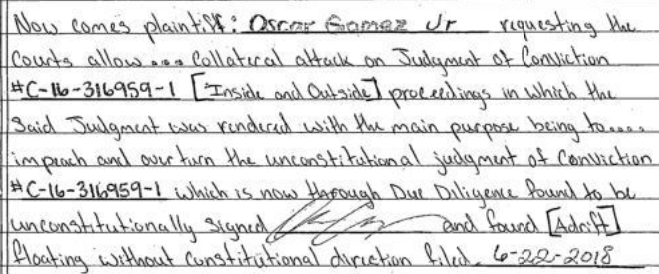 Now comes plaintiff: Oscar Gomez Jr requesting the
Courts allow... Collateral attack on Judgment of Conviction
#C-16-316959-1 [Inside and Outside] proceedings in which the
Said Judgment was rendered with the main purpose being to....
impeach and overturn the unconstitutional judgment of Conviction
#C-16-316959-1 which is now through Due Diligence found to be
unconstitutionally signed and found [Adrift]
floating without constitutional direction filed. 6-22-2018